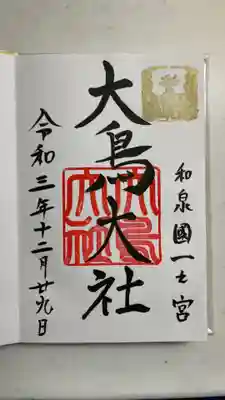 和泉國一之宮
大鳥大社
令和三年十二月廿九日